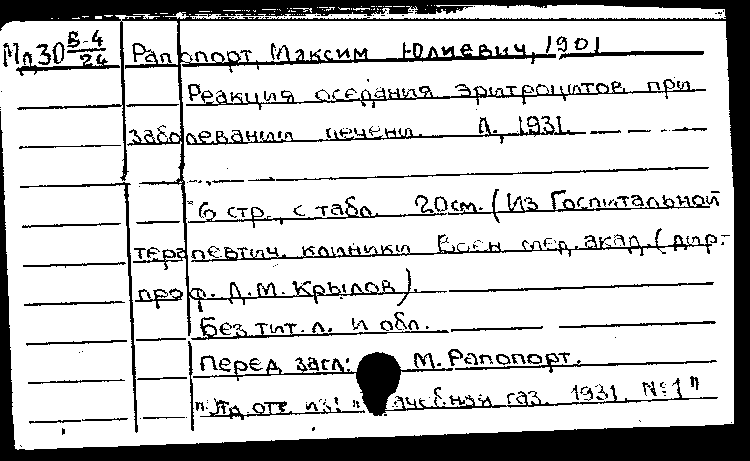 Мл30 В-4/24 Рапопорт, Максим Юлиевич, 1901
Реакция оседания эритроцитов при
заболевании печени. Л., 1931.
6 стр., с табл. 20см. (Из Госпитальной
терапевтич. клиники Воен. мед. акад. (дир.
проф. Д.М. Крылов).
Без тит. л. и обл.
Перед загл: М. Рапопорт.
отт. из: " газ. 1931. №1"